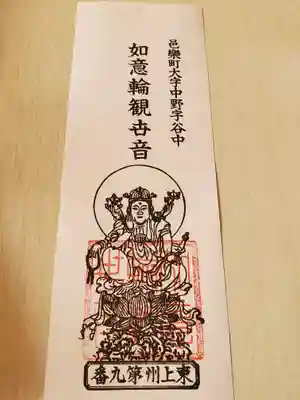 邑樂町大字中野字谷中
如意輪観世音
東上州第九番